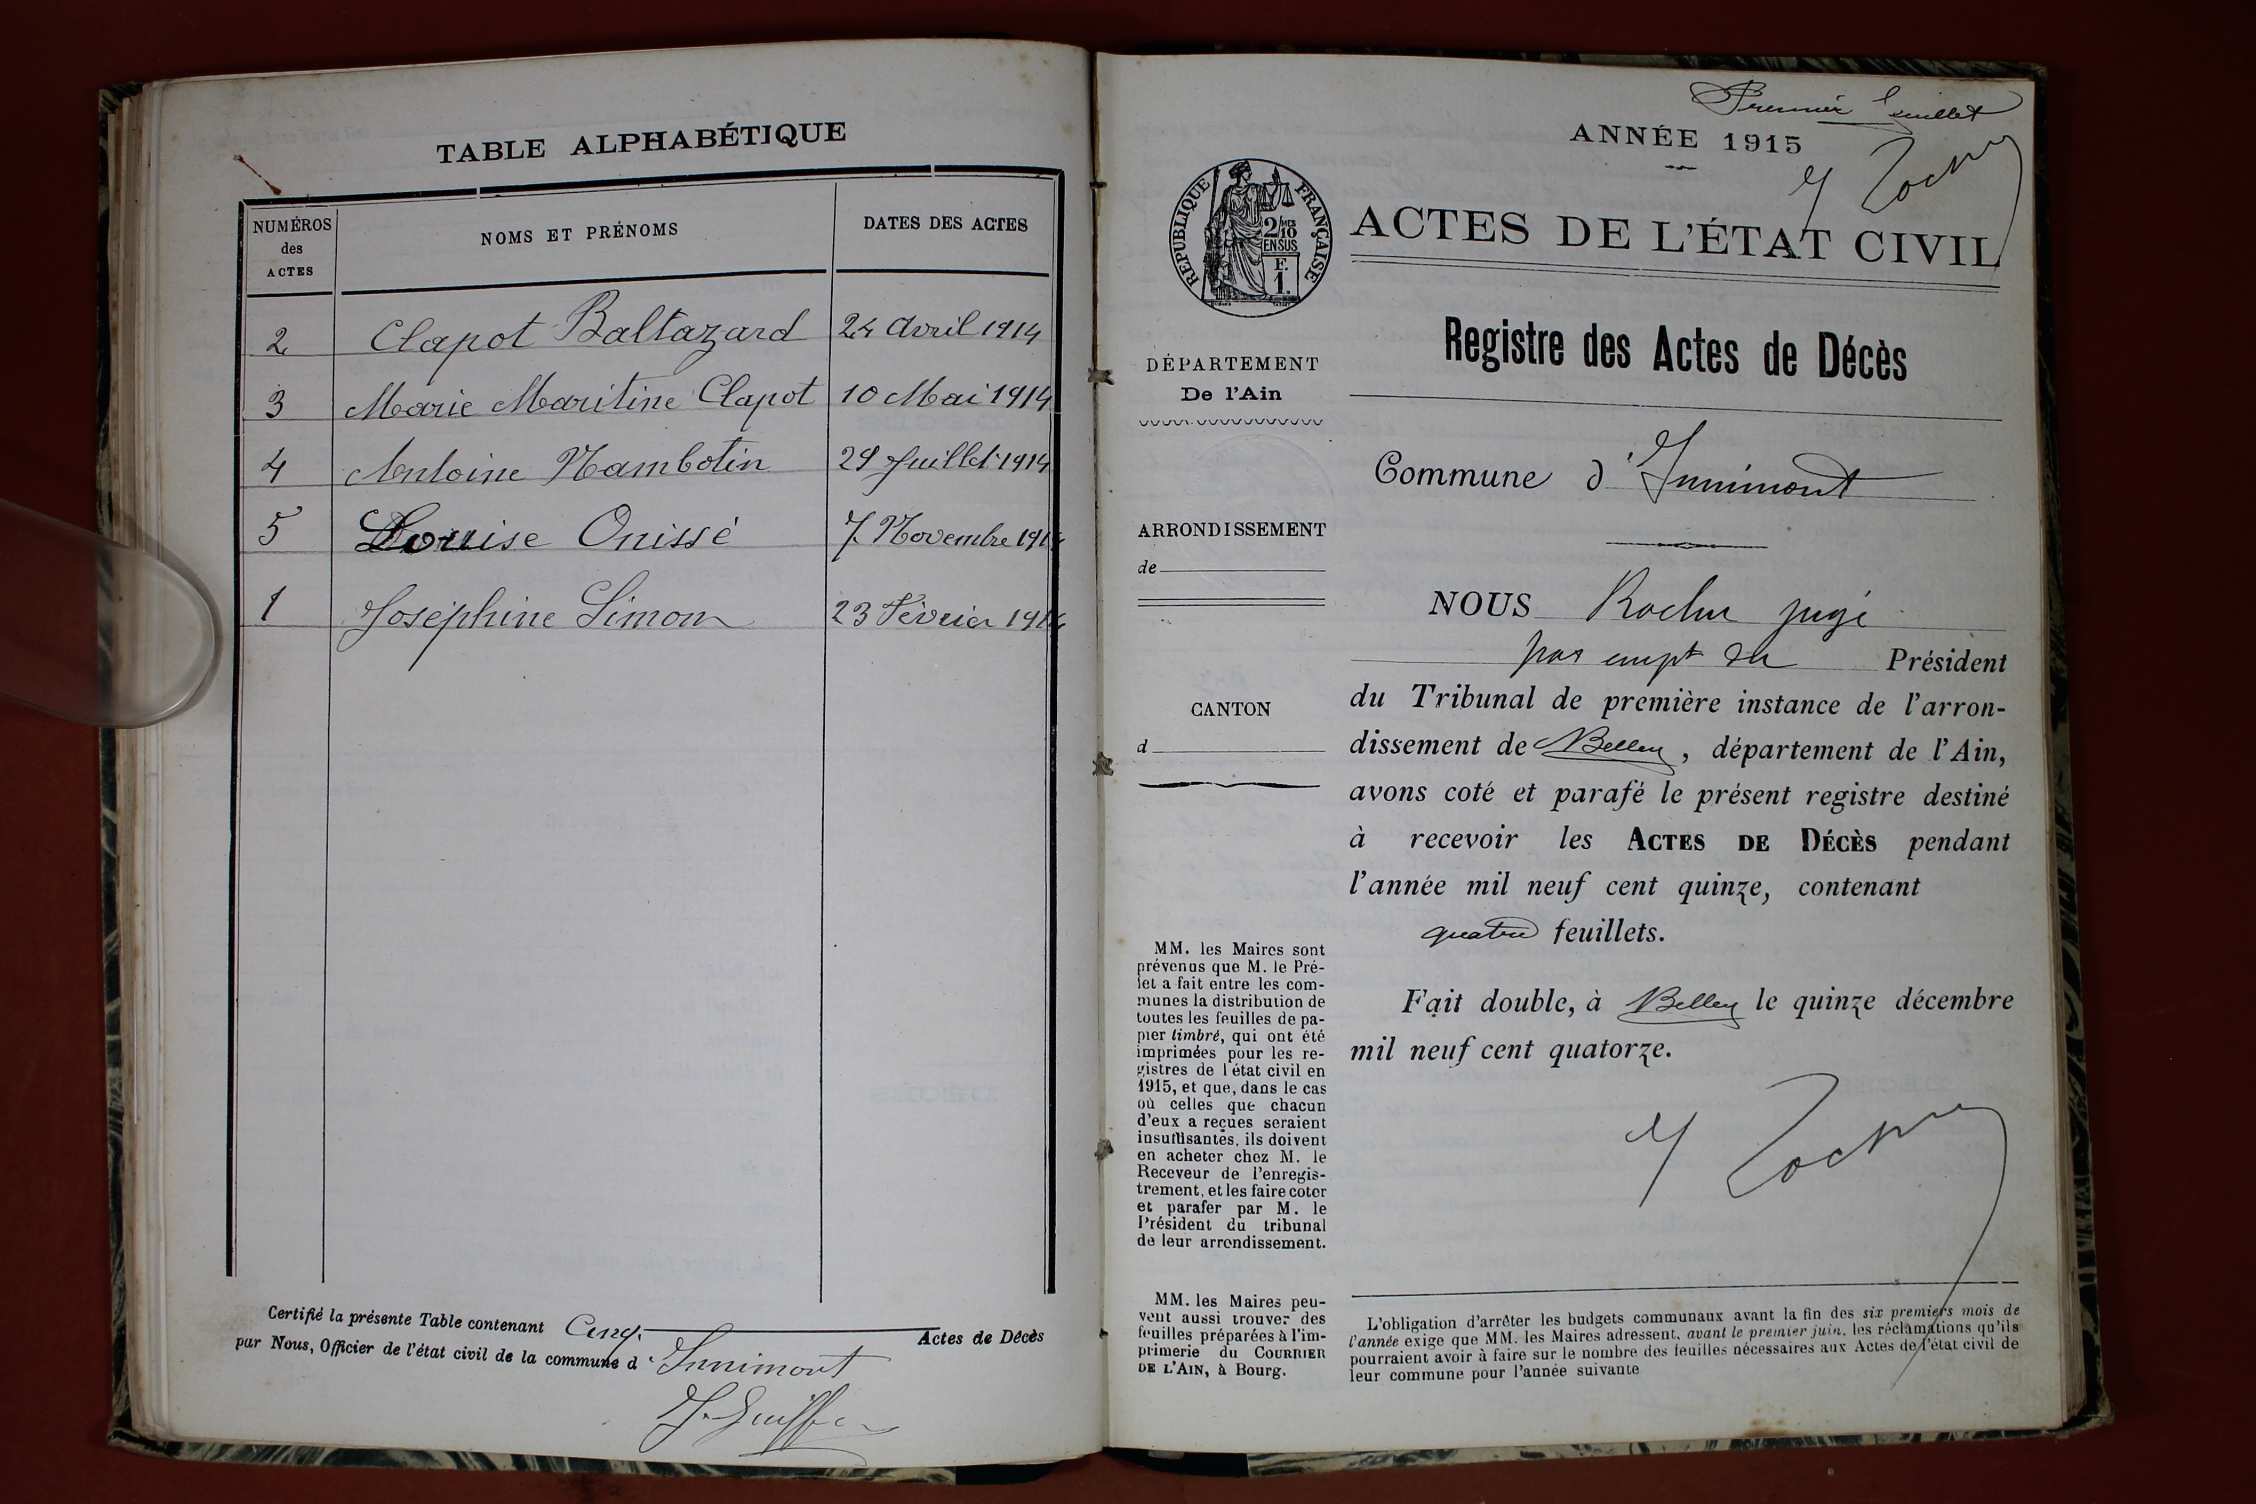 TABLE ALPHABÉTIQUE
NUMÉROS
des
ACTES
NOMS ET PRÉNOMS
DATES DES ACTES
2 Clapot Baltazard 24 Avril 1914
3 Marie Maritine Clapot 10 Mai 1914
4 Antoine Nambotin 29 Juillet 1914
5 Louise Onissé 7 Novembre 1914
1 Joséphine Simon 23 Février 1914
Certifié la présente Table contenant Cinq Actes de Décès
par Nous, Officier de l'état civil de la commune d'Innimont
Premier feuillet
ANNÉE 1915
RÉPUBLIQUE FRANÇAISE
2/10 MES
EN SUS
F.
1.
ACTES DE L'ÉTAT CIVIL
Registre des Actes de Décès
DÉPARTEMENT
De l'Ain
Commune d'Innimont
ARRONDISSEMENT
de
CANTON
d
NOUS Rocher juge
par empt du Président
du Tribunal de première instance de l'arron-
dissement de Belley, département de l'Ain,
avons coté et parafé le présent registre destiné
à recevoir les ACTES DE DÉCÈS pendant
l'année mil neuf cent quinze, contenant
quatre feuillets.
Fait double, à Belley le quinze décembre
mil neuf cent quatorze.
MM. les Maires sont
prévenus que M. le Pré-
fet a fait entre les com-
munes la distribution de
toutes les feuilles de pa-
pier timbré, qui ont été
imprimées pour les re-
gistres de l'état civil en
1915, et que, dans le cas
où celles que chacun
d'eux a reçues seraient
insuffisantes, ils doivent
en acheter chez M. le
Receveur de l'enregis-
trement, et les faire coter
et parafer par M. le
Président du tribunal
de leur arrondissement.
MM. les Maires peu-
vent aussi trouver des
feuilles préparées à l'im-
primerie du COURRIER
DE L'AIN, à Bourg.
L'obligation d'arrêter les budgets communaux avant la fin des six premiers mois de
l'année exige que MM. les Maires adressent, avant le premier juin, les réclamations qu'ils
pourraient avoir à faire sur le nombre des feuilles nécessaires aux Actes de l'état civil de
leur commune pour l'année suivante